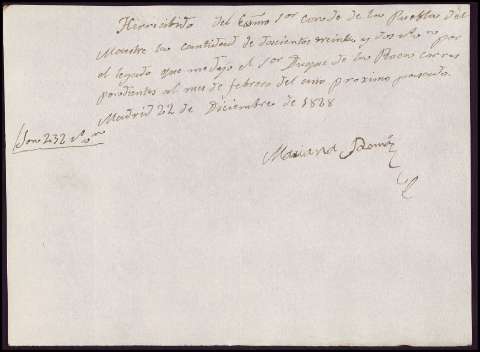 He recibido del Exmo Sor conde de la Puebla del
Maestre la cantidad de doscientos treinta y dos rs vn por
el legado que me dejo el Sor Duque de las corres
pondientes al mes de febrero del año proximo pasado.
Madrid 22 de Diciembre de 1828
Son 232 rs vn
Mariana